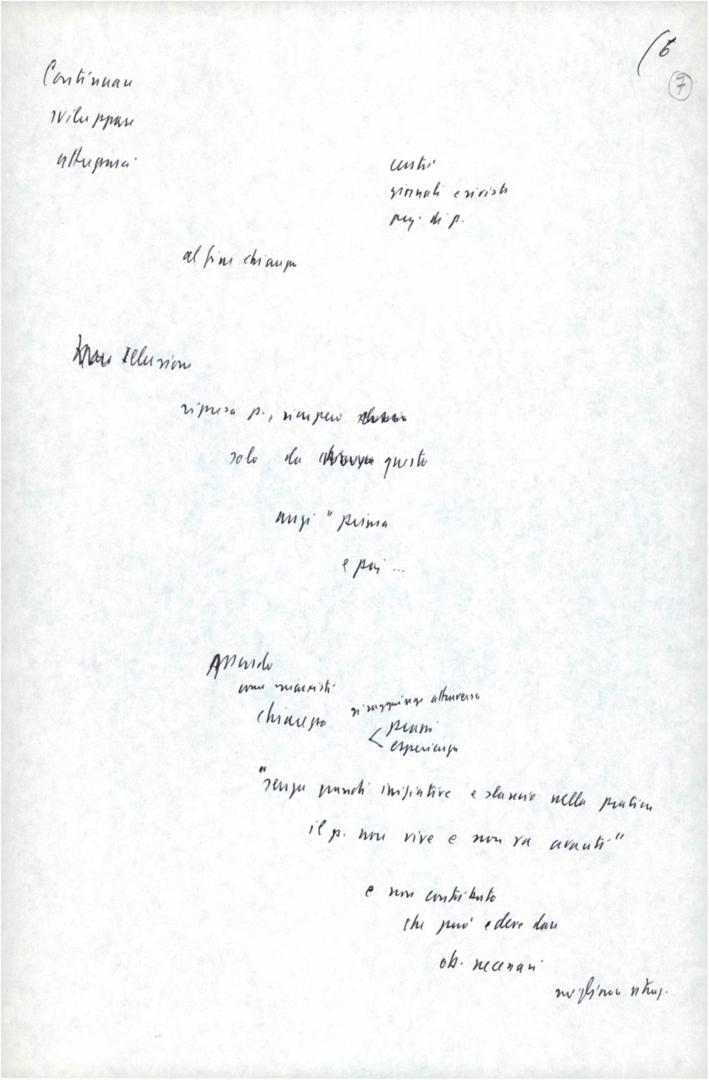 (6
7
Continuare
sviluppare
centri
giornali e riviste
prog. di p.
al fine chiarezza
Illusione
ripresa p., recupero
solo da questo
anzi "prima
e poi ...
Assurdo
come marxisti
chiarezza si raggiunge attraverso
prassi
esperienza
"senza grandi iniziative e slancio nella pratica
il p. non vive e non va avanti"
e non contributo
che può e deve dare
ob. necessari